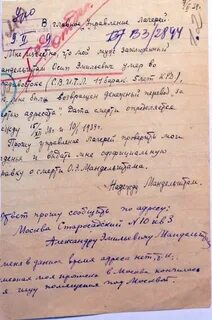 В Главное Управление лагерей
Мне известно, что мой муж заключенный
Мандельштам Осип Эмильевич умер во
Владивостоке (С.В.И.Т.Л. 11 барак. 5 лет К.Р.Д.)
мне был возвращен денежный перевод за
адресата". Дата смерти определяется
между 15/XII 38 г. и 10/I 1939 г.
Прошу управление лагерей проверить мои
сведения и выдать мне официальную
справку о смерти О.Э. Мандельштама.
Надежда Мандельштам.
Ответ прошу сообщить по адресу:
Москва Старосадский N 10 кв 3
Александру Эмильевичу Мандельштаму
у меня в данное время адреса нет, т.к.
моя прописка в Москве кончилась
я ищу помещения под Москвой.